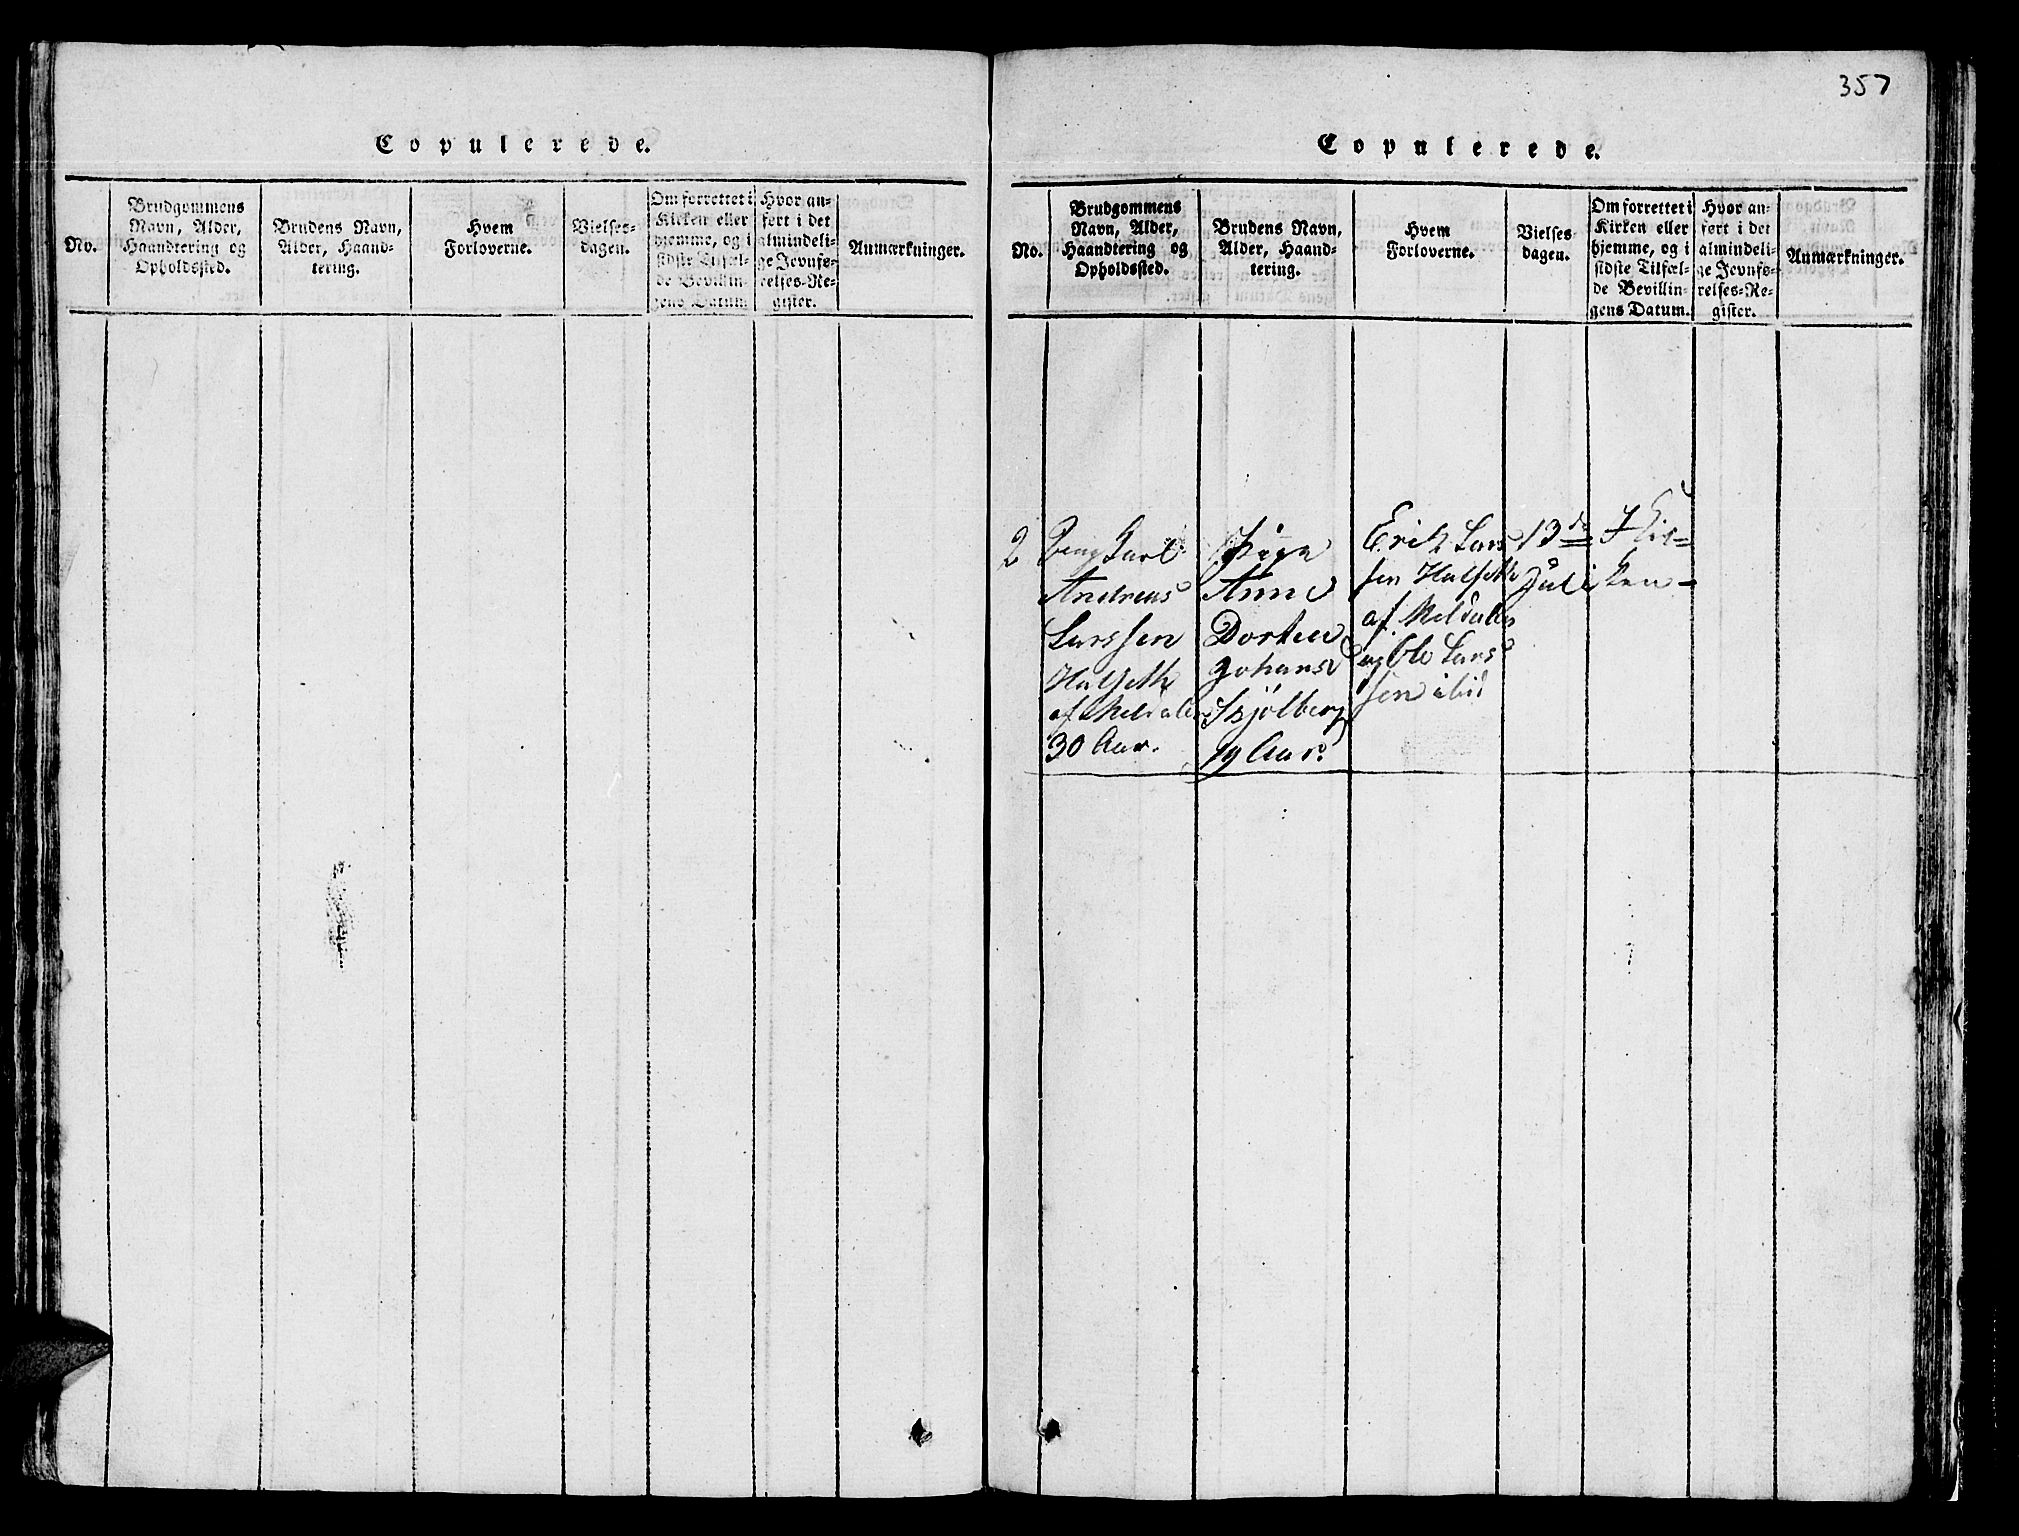 357
Copulerede.
No.
Brudgommens
Navn, Alder,
Haandtering og
Opholdssted.
Brudens Navn,
Alder, Haand-
tering.
Hvem
Forloverne.
Vielses-
dagen.
Om forrettet i
Kirken eller
hjemme, og i
sidste Tilfæl-
de Bevillin-
gens Datum
Hvor an-
ført i det
almindeli-
ge Jevnfø-
relses-Re-
gister.
Anmærkninger.
Copulerede.
No.
Brudgommens
Navn, Alder,
Haandtering og
Opholdssted.
Brudens Navn,
Alder, Haand-
tering.
Hvem
Forloverne.
Vielses-
dagen.
Om forrettet i
Kirken eller
hjemme, og i
sidste Tilfæl-
de Bevillin-
gens Datum.
Hvor an-
ført i det
almindeli-
ge Jevnfø-
relses-Re-
gister.
Anmærkninger.
2
Ung Karl
Andreas
Larssen
Halseth
af Meldalen
30 Aar.
Pige
Anne
Dorthea
Johansd
Skjølberg
19 Aar.
Erik Lars
sen Halseth
af Meldalen
og Ole Lars
sen ibid
13de
Juli
I Kir=
ken